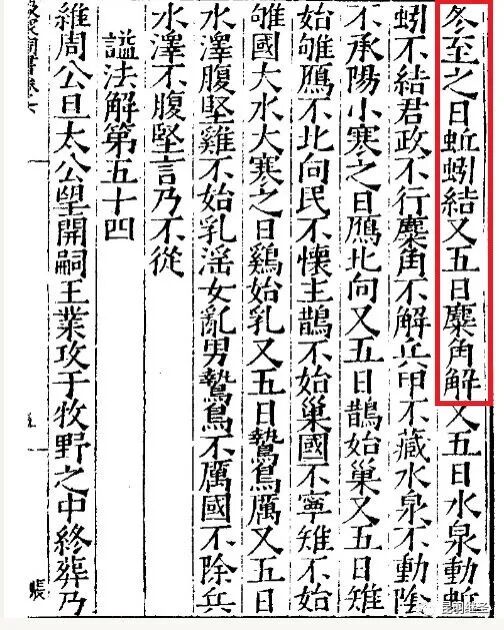 冬至之日蚯蚓結又五日麋角解又五日水泉動蚯
蚓不結君政不行麋角不解兵甲不藏水泉不動陰
不承陽小寒之日鴈北向又五日鵲始巢又五日雉
始雊鴈不北向民不懷主鵲不始巢國不寧雉不始
雊國大水大寒之日鷄始乳又五日鷙鳥厲又五日
水澤腹堅雞不始乳淫女亂男鷙鳥不厲國不除兵
水澤不腹堅言乃不從
謚法解第五十四
維周公旦太公望開嗣王業攻于牧野之中終葬乃
五
昆羽继圣